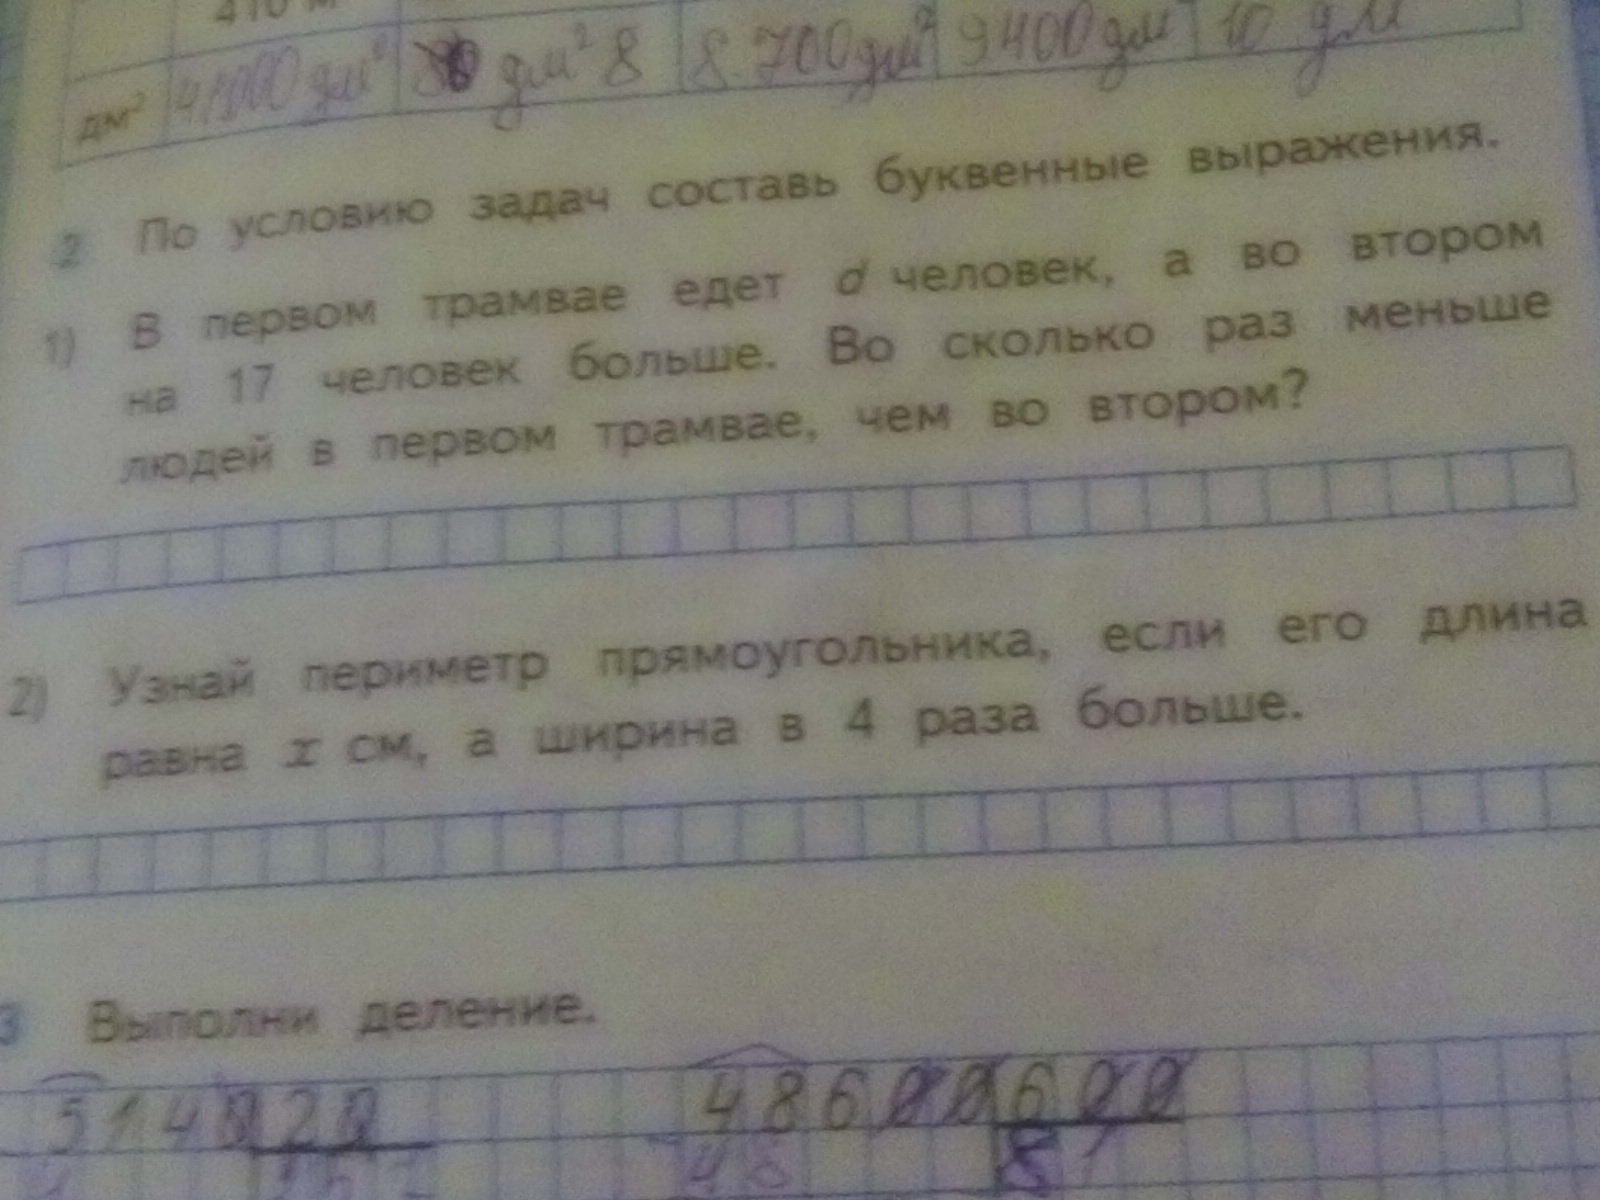 410 м
дм² 41000 дм² дм² 8 8 700 дм² 9400 дм 10 дм
2 По условию задач составь буквенные выражения.
1) В первом трамвае едет d человек, а во втором
на 17 человек больше. Во сколько раз меньше
людей в первом трамвае, чем во втором?
2) Узнай периметр прямоугольника, если его длина
равна x см, а ширина в 4 раза больше.
3 Выполни деление.
5140 20 48600 600
48 81